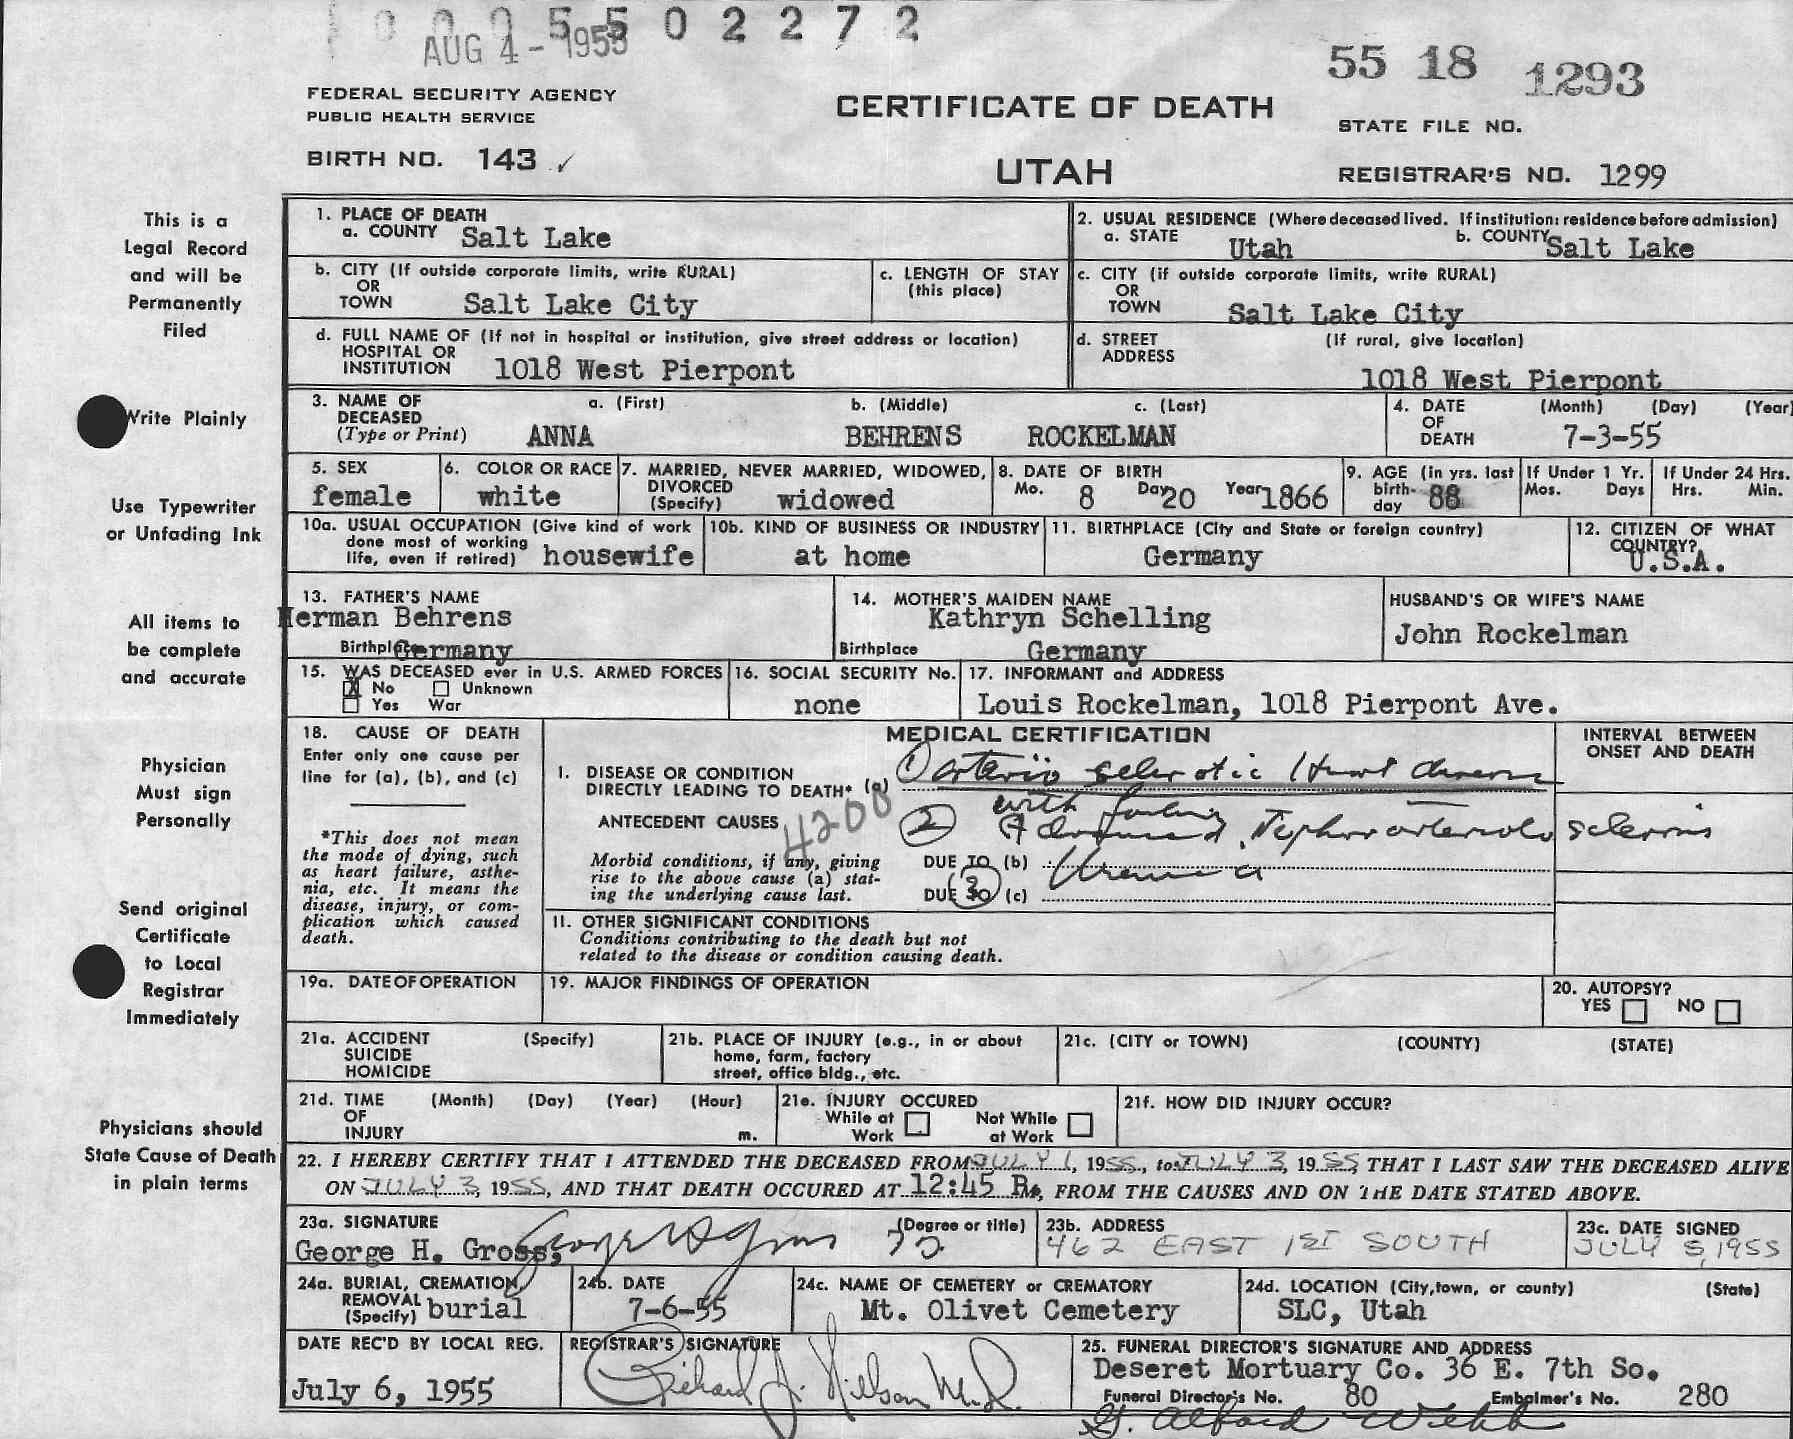 1 0 0 0 5 5 0 2 2 7 2
AUG 4 - 1955
55 18 1293
FEDERAL SECURITY AGENCY
PUBLIC HEALTH SERVICE
CERTIFICATE OF DEATH
STATE FILE NO.
BIRTH NO. 143 ✓
UTAH
REGISTRAR'S NO. 1299
This is a
Legal Record
and will be
Permanently
Filed
Write Plainly
Use Typewriter
or Unfading Ink
All items to
be complete
and accurate
Physician
Must sign
Personally
Send original
Certificate
to Local
Registrar
Immediately
Physicians should
State Cause of Death
in plain terms
1. PLACE OF DEATH
a. COUNTY Salt Lake
2. USUAL RESIDENCE (Where deceased lived. If institution: residence before admission)
a. STATE Utah b. COUNTY Salt Lake
b. CITY (If outside corporate limits, write RURAL)
OR
TOWN Salt Lake City
c. LENGTH OF STAY
(this place)
c. CITY (if outside corporate limits, write RURAL)
OR
TOWN Salt Lake City
d. FULL NAME OF (If not in hospital or institution, give street address or location)
HOSPITAL OR
INSTITUTION 1018 West Pierpont
d. STREET (If rural, give location)
ADDRESS
1018 West Pierpont
3. NAME OF a. (First) b. (Middle) c. (Last)
DECEASED
(Type or Print) ANNA BEHRENS ROCKELMAN
4. DATE (Month) (Day) (Year)
OF
DEATH 7-3-55
5. SEX
female
6. COLOR OR RACE
white
7. MARRIED, NEVER MARRIED, WIDOWED,
DIVORCED
(Specify) widowed
8. DATE OF BIRTH
Mo. 8 Day 20 Year 1866
9. AGE (in yrs. last
birth-
day 88
If Under 1 Yr.
Mos. Days
If Under 24 Hrs.
Hrs. Min.
10a. USUAL OCCUPATION (Give kind of work
done most of working
life, even if retired) housewife
10b. KIND OF BUSINESS OR INDUSTRY
at home
11. BIRTHPLACE (City and State or foreign country)
Germany
12. CITIZEN OF WHAT
COUNTRY?
U.S.A.
13. FATHER'S NAME
Herman Behrens
Birthplace Germany
14. MOTHER'S MAIDEN NAME
Kathryn Schelling
Birthplace Germany
HUSBAND'S OR WIFE'S NAME
John Rockelman
15. WAS DECEASED ever in U.S. ARMED FORCES
X No Unknown
Yes War
16. SOCIAL SECURITY No.
none
17. INFORMANT and ADDRESS
Louis Rockelman, 1018 Pierpont Ave.
18. CAUSE OF DEATH
Enter only one cause per
line for (a), (b), and (c)
*This does not mean
the mode of dying, such
as heart failure, asthe-
nia, etc. It means the
disease, injury, or com-
plication which caused
death.
MEDICAL CERTIFICATION
INTERVAL BETWEEN
ONSET AND DEATH
I. DISEASE OR CONDITION
DIRECTLY LEADING TO DEATH* (a) 1 arterio sclerotic Heart disease
with failure
ANTECEDENT CAUSES 4200 2 Advanced Nephro arteriolo sclerosis
Morbid conditions, if any, giving
rise to the above cause (a) stat-
ing the underlying cause last.
DUE TO (b) Uremia
DUE TO 3 (c)
II. OTHER SIGNIFICANT CONDITIONS
Conditions contributing to the death but not
related to the disease or condition causing death.
19a. DATE OF OPERATION
19. MAJOR FINDINGS OF OPERATION
20. AUTOPSY?
YES NO
21a. ACCIDENT (Specify)
SUICIDE
HOMICIDE
21b. PLACE OF INJURY (e.g., in or about
home, farm, factory
street, office bldg., etc.
21c. (CITY or TOWN) (COUNTY) (STATE)
21d. TIME (Month) (Day) (Year) (Hour)
OF
INJURY m.
21e. INJURY OCCURED
While at Not While
Work at Work
21f. HOW DID INJURY OCCUR?
22. I HEREBY CERTIFY THAT I ATTENDED THE DECEASED FROM JULY 1, 1955, to JULY 3, 1955, THAT I LAST SAW THE DECEASED ALIVE
ON JULY 3, 1955, AND THAT DEATH OCCURED AT 12:45 P m, FROM THE CAUSES AND ON THE DATE STATED ABOVE.
23a. SIGNATURE (Degree or title)
George H. Gross, George H Gross
23b. ADDRESS
462 EAST 1ST SOUTH
23c. DATE SIGNED
JULY 5, 1955
24a. BURIAL, CREMATION,
REMOVAL
(Specify) burial
24b. DATE
7-6-55
24c. NAME OF CEMETERY or CREMATORY
Mt. Olivet Cemetery
24d. LOCATION (City, town, or county) (State)
SLC, Utah
DATE REC'D BY LOCAL REG.
July 6, 1955
REGISTRAR'S SIGNATURE
Richard J. Nilson M.D.
25. FUNERAL DIRECTOR'S SIGNATURE AND ADDRESS
Deseret Mortuary Co. 36 E. 7th So.
Funeral Director's No. 80 Embalmer's No. 280
G. Alford Webb